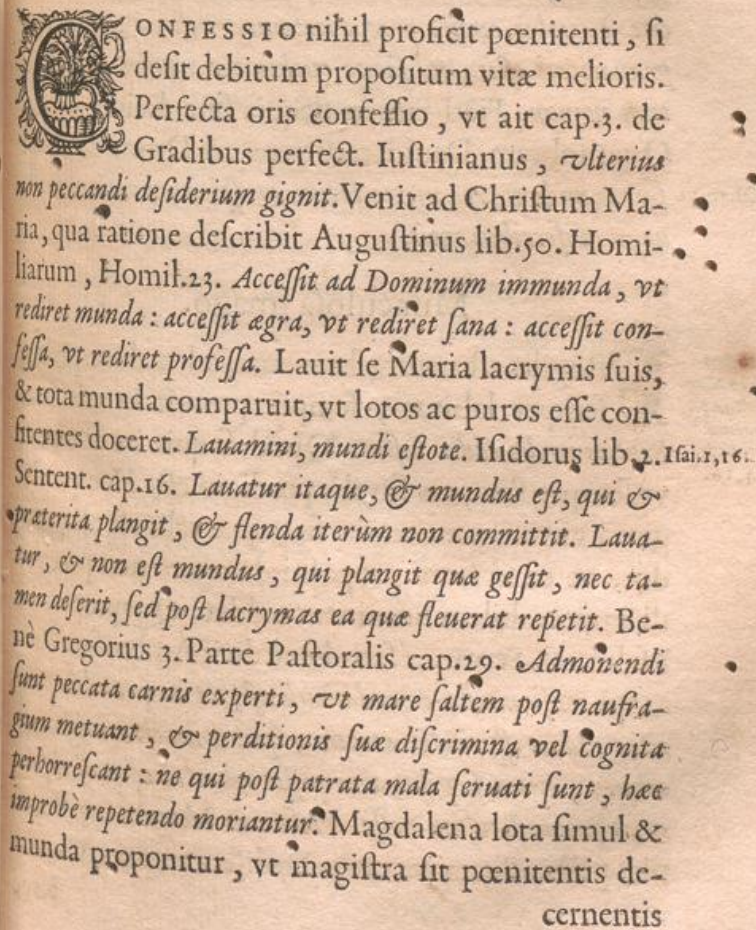 CONFESSIO nihil proficit pœnitenti, ſi
deſit debitum propoſitum vitæ melioris.
Perfecta oris confeſſio, vt ait cap.3. de
Gradibus perfect. Iuſtinianus, vlterius
non peccandi deſiderium gignit. Venit ad Chriſtum Ma-
ria, qua ratione deſcribit Auguſtinus lib.50. Homi-
liarum, Homil.23. Acceſſit ad Dominum immunda, vt
rediret munda: acceſſit ægra, vt rediret ſana: acceſſit con-
feſſa, vt rediret profeſſa. Lauit ſe Maria lacrymis ſuis,
& tota munda comparuit, vt lotos ac puros eſſe con-
fitentes doceret. Lauamini, mundi eſtote. Iſidorus lib.2. Iſai.1,16.
Sentent. cap.16. Lauatur itaque, & mundus eſt, qui &
præterita plangit, & flenda iterùm non committit. Laua-
tur, & non eſt mundus, qui plangit quæ geſſit, nec ta-
men deſerit, ſed poſt lacrymas ea quæ fleuerat repetit. Be-
nè Gregorius 3. Parte Paſtoralis cap.29. Admonendi
ſunt peccata carnis experti, vt mare ſaltem poſt naufra-
gium metuant, & perditionis ſuæ diſcrimina vel cognita
perhorreſcant: ne qui poſt patrata mala ſeruati ſunt, hæc
improbè repetendo moriantur. Magdalena lota ſimul &
munda proponitur, vt magiſtra ſit pœnitentis de-
cernentis